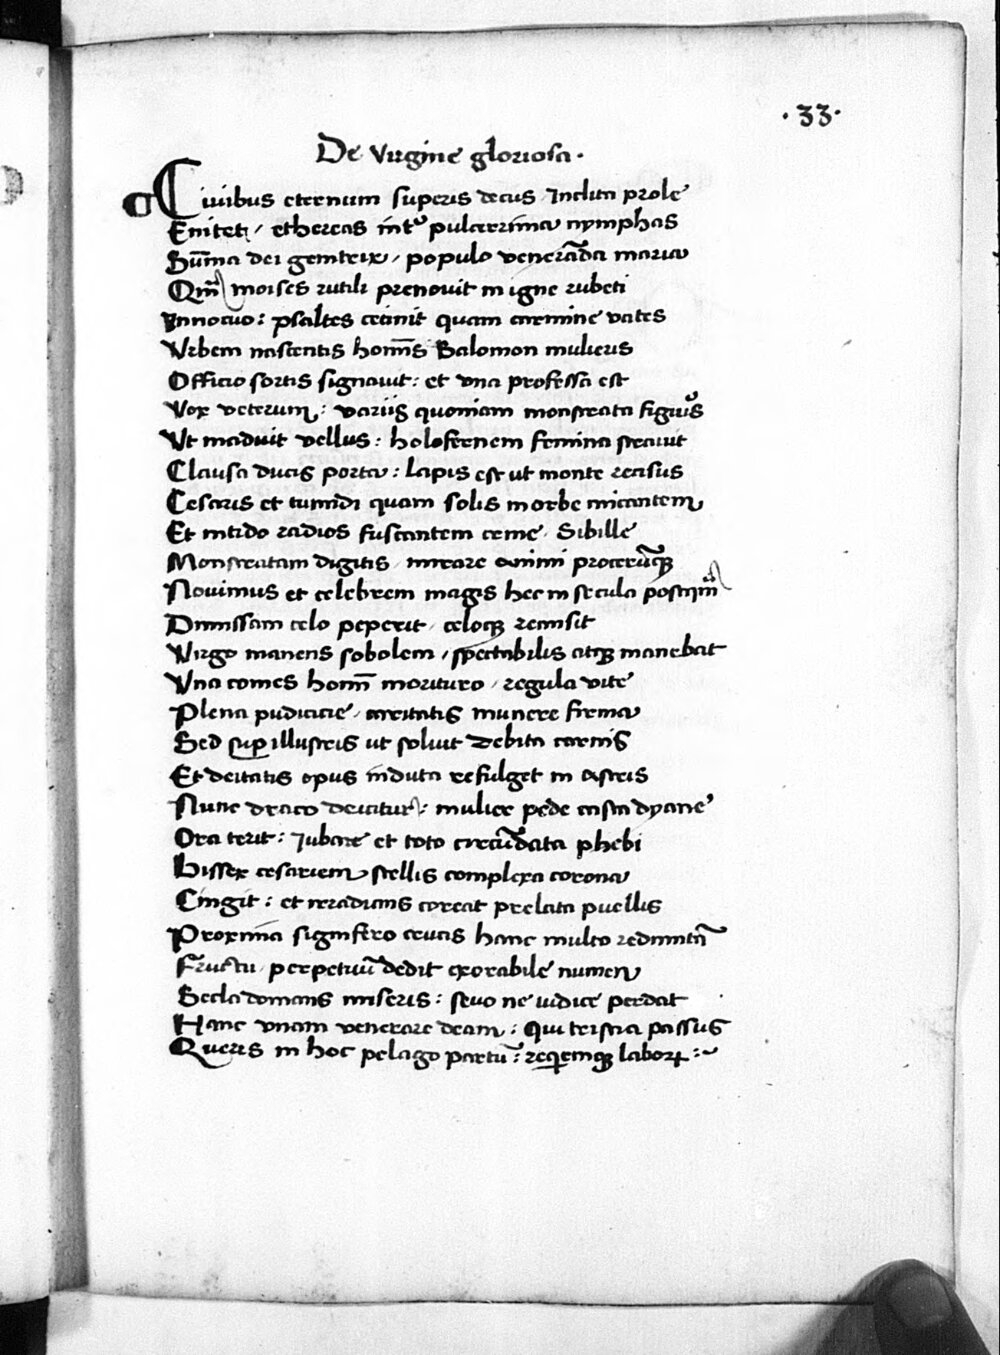 ·33·
De Virgine gloriosa·
Ciuibus eternum superis decus Inclita prole
Enitet, ethereas int᷑ pulcerrima nymphas
Sūma dei genitrix, populo venerāda maria
Qm̄ moises rutili prenouit in igne rubeti
Innocuo: psaltes cecinit quam carmine vates
Vrbem nascentis homīs Salomon mulieris
Officio fortis signauit: et vna professa est
Vox veterum: variis quoniam monstrata figuris
Vt maduit vellus: holofernem femina strauit
Clausa ducis porta: Lapis est ut monte recisus
Cesaris et tumidi quam solis in orbe micantem
Et nitido radios fuscantem cerne Sibille
Monstratam digitis, mirare animi procerūqꝫ
Nouimus et celebrem magis hec in secula postqm̄
Dimissam celo peperit, celoqꝫ remisit
Virgo manens sobolem, spectabilis atqꝫ manebat
Vna comes homī morituro, regula vite
Plena pudicicie, caritatis munere firma
Sed sup illustris ut soluit debita carnis
Et deitatis opus induta refulget in astris
Nunc draco deicitur: mulier pede casta dyane
Ora terit: Iubare et toto circūdata phebi
Bissex cesariem stellis complexa corona
Cingit: et irradians coreat prelata puellis
Proxima signifero crucis hanc multo redimitā
Fructu, perpetuū dedit exorabile numen
Secla domans miseris: seuo ne iudice perdat
Hanc vnam venerare deam: qui tristia passus
Queris in hoc pelago partū: requiemqꝫ laboꝝ:~